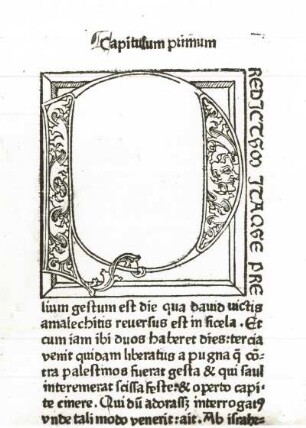 Capitulum primum
PREDICTUM ITAQUE PRE
lium gestum est die qua david victis
amalechitis reversus est in sicela. Et
cum iam ibi duos haberet dies: tercia
venit quidam liberatus a pugna q̄ cō-
tra palestinos fuerat gesta & qui saul
interemerat scissa veste: & operto capi-
te cinere. Qui dū adorass; interrogatꝰ
vnde tali modo venerit: ait. Ab israhe-